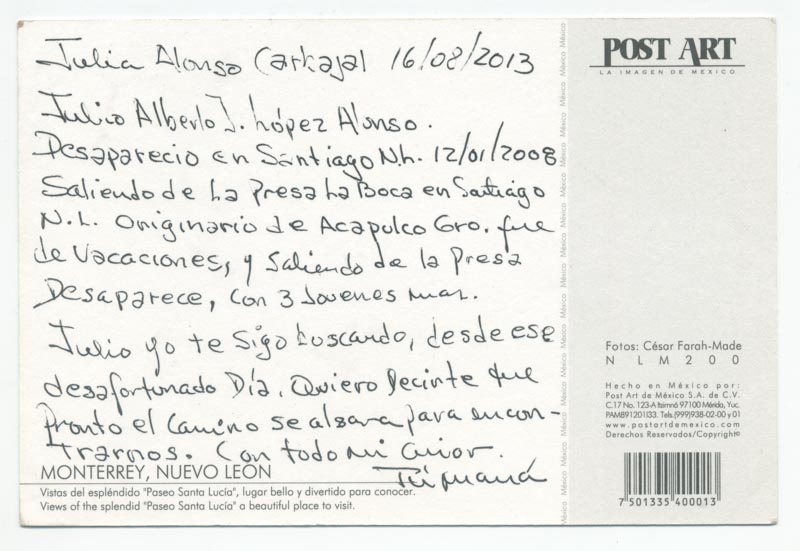 Julia Alonso Carbajal 16/08/2013
Julio Alberto J. López Alonso.
Desaparecio en Santiago N.L. 12/01/2008
Saliendo de La Presa La Boca en Santiago
N.L. Originario de Acapulco Gro. fue
de Vacaciones, y saliendo de la Presa
Desaparece, con 3 Jovenes mas.
Julio yo te sigo buscando, desde ese
desafortunado Día. Quiero Decirte que
Pronto el camino se alsara para encon-
trarnos. Con todo mi amor.
Tu mamá
MONTERREY, NUEVO LEON
Vistas del espléndido "Paseo Santa Lucía", lugar bello y divertido para conocer.
Views of the splendid "Paseo Santa Lucía" a beautiful place to visit.
México México México México México México México México México México México México México México México
POST ART
LA IMAGEN DE MEXICO
Fotos: César Farah-Made
NLM200
Hecho en México por:
Post Art de México S.A. de C.V.
C.17 No. 123-A Itzimná 97100 Mérida, Yuc.
PAM891201I33. Tels.(999)938-02-00 y 01
www.postartdemexico.com
Derechos Reservados/Copyright©
7 501335 400013